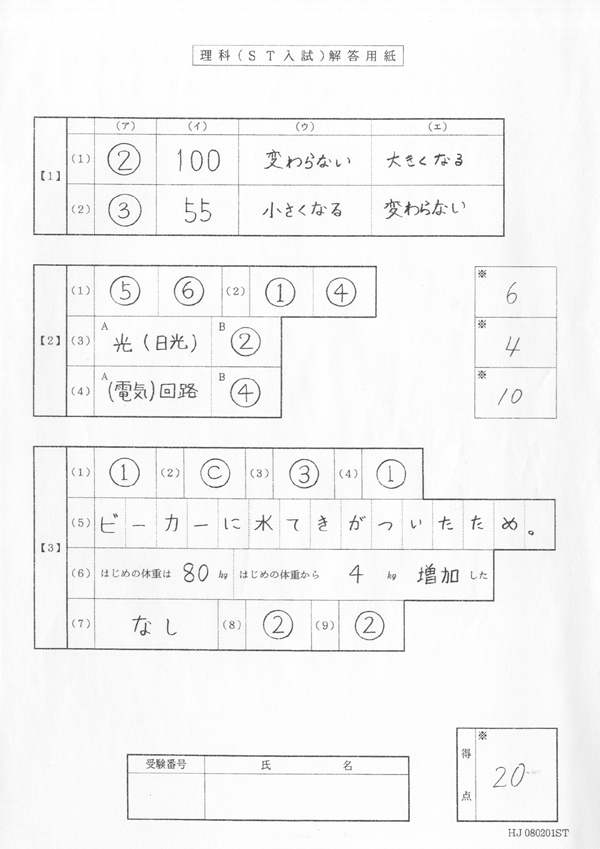 理科(ST入試)解答用紙
(ア) (イ) (ウ) (エ)
【1】
(1) ② 100 変わらない 大きくなる
(2) ③ 55 小さくなる 変わらない
【2】
(1) ⑤ ⑥ (2) ① ④
(3) A 光(日光) B ②
(4) A (電気)回路 B ④
※ 6
※ 4
※ 10
【3】
(1) ① (2) Ⓒ (3) ③ (4) ①
(5) ビーカーに水てきがついたため。
(6) はじめの体重は 80 kg はじめの体重から 4 kg 増加した
(7) なし (8) ② (9) ②
受験番号 氏名
得点 ※ 20
HJ 080201ST